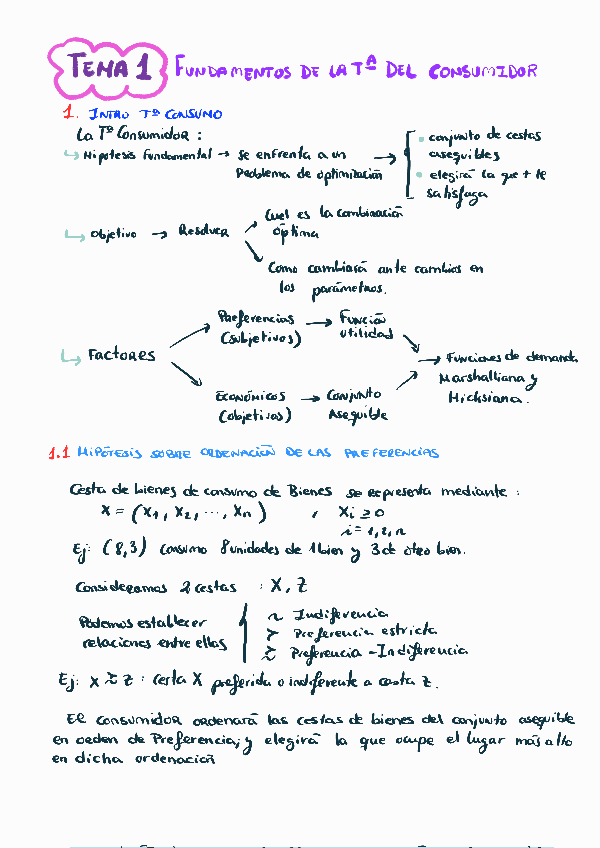 TEMA 1 FUNDAMENTOS DE LA Tª DEL CONSUMIDOR
1. INTRO Tª CONSUMO
La Tª Consumidor :
Hipótesis Fundamental → se enfrenta a un → conjunto de cestas
Problema de optimización asequibles
elegirá la que + le
satisfaga
Objetivo → Resolver Cual es la combinación
óptima
Como cambiará ante cambios en
los parámetros.
Preferencias → Función
(subjetivos) utilidad
Factores → Funciones de demanda
Marshalliana y
Hicksiana.
Económicos → Conjunto
(objetivos) Asequible
1.1 HIPÓTESIS SOBRE ORDENACIÓN DE LAS PREFERENCIAS
Cesta de bienes de consumo de Bienes se representa mediante :
X = (X1, X2, ..., Xn) , Xi ≥ 0
i = 1, 2, n
Ej: (8,3) consumo 8 unidades de 1 bien y 3 de otro bien.
Consideramos 2 cestas : X, Z
Podemos establecer ~ Indiferencia
relaciones entre ellas ≻ Preferencia estricta
≿ Preferencia - Indiferencia
Ej: X ≿ Z : cesta X preferida o indiferente a cesta Z.
El consumidor ordenará las cestas de bienes del conjunto asequible
en orden de Preferencia, y elegirá la que ocupe el lugar más alto
en dicha ordenación